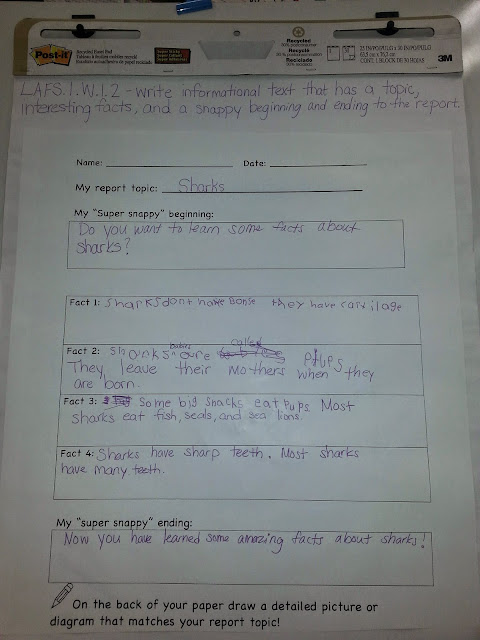 Post-it
Recycled
Recyclé
Reciclado
3M
LAFS.1.W.1.2 - write informational text that has a topic,
interesting facts, and a snappy beginning and ending to the report.
Name: Date:
My report topic: Sharks
My "Super snappy" beginning:
Do you want to learn some facts about
sharks?
Fact 1: Sharks dont have bonse they have cartilage
Fact 2: babies are called pups
They leave their mothers when they
are born.
Fact 3: Some big snacks eat pups. Most
sharks eat fish, seals, and sea lions.
Fact 4: Sharks have sharp teeth. Most sharks
have many teeth.
My "super snappy" ending:
Now you have learned some amazing facts about sharks!
On the back of your paper draw a detailed picture or
diagram that matches your report topic!